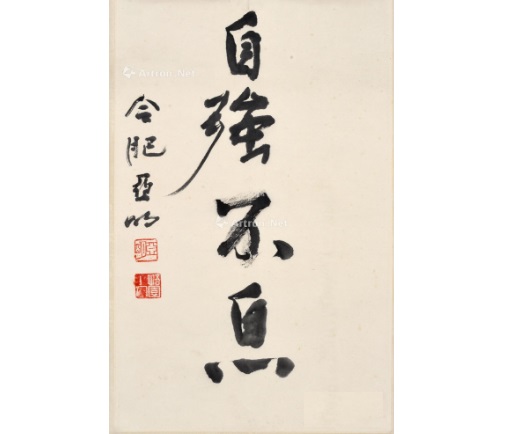 自強不息
合肥亞明
Artron.Net
Artron.Net